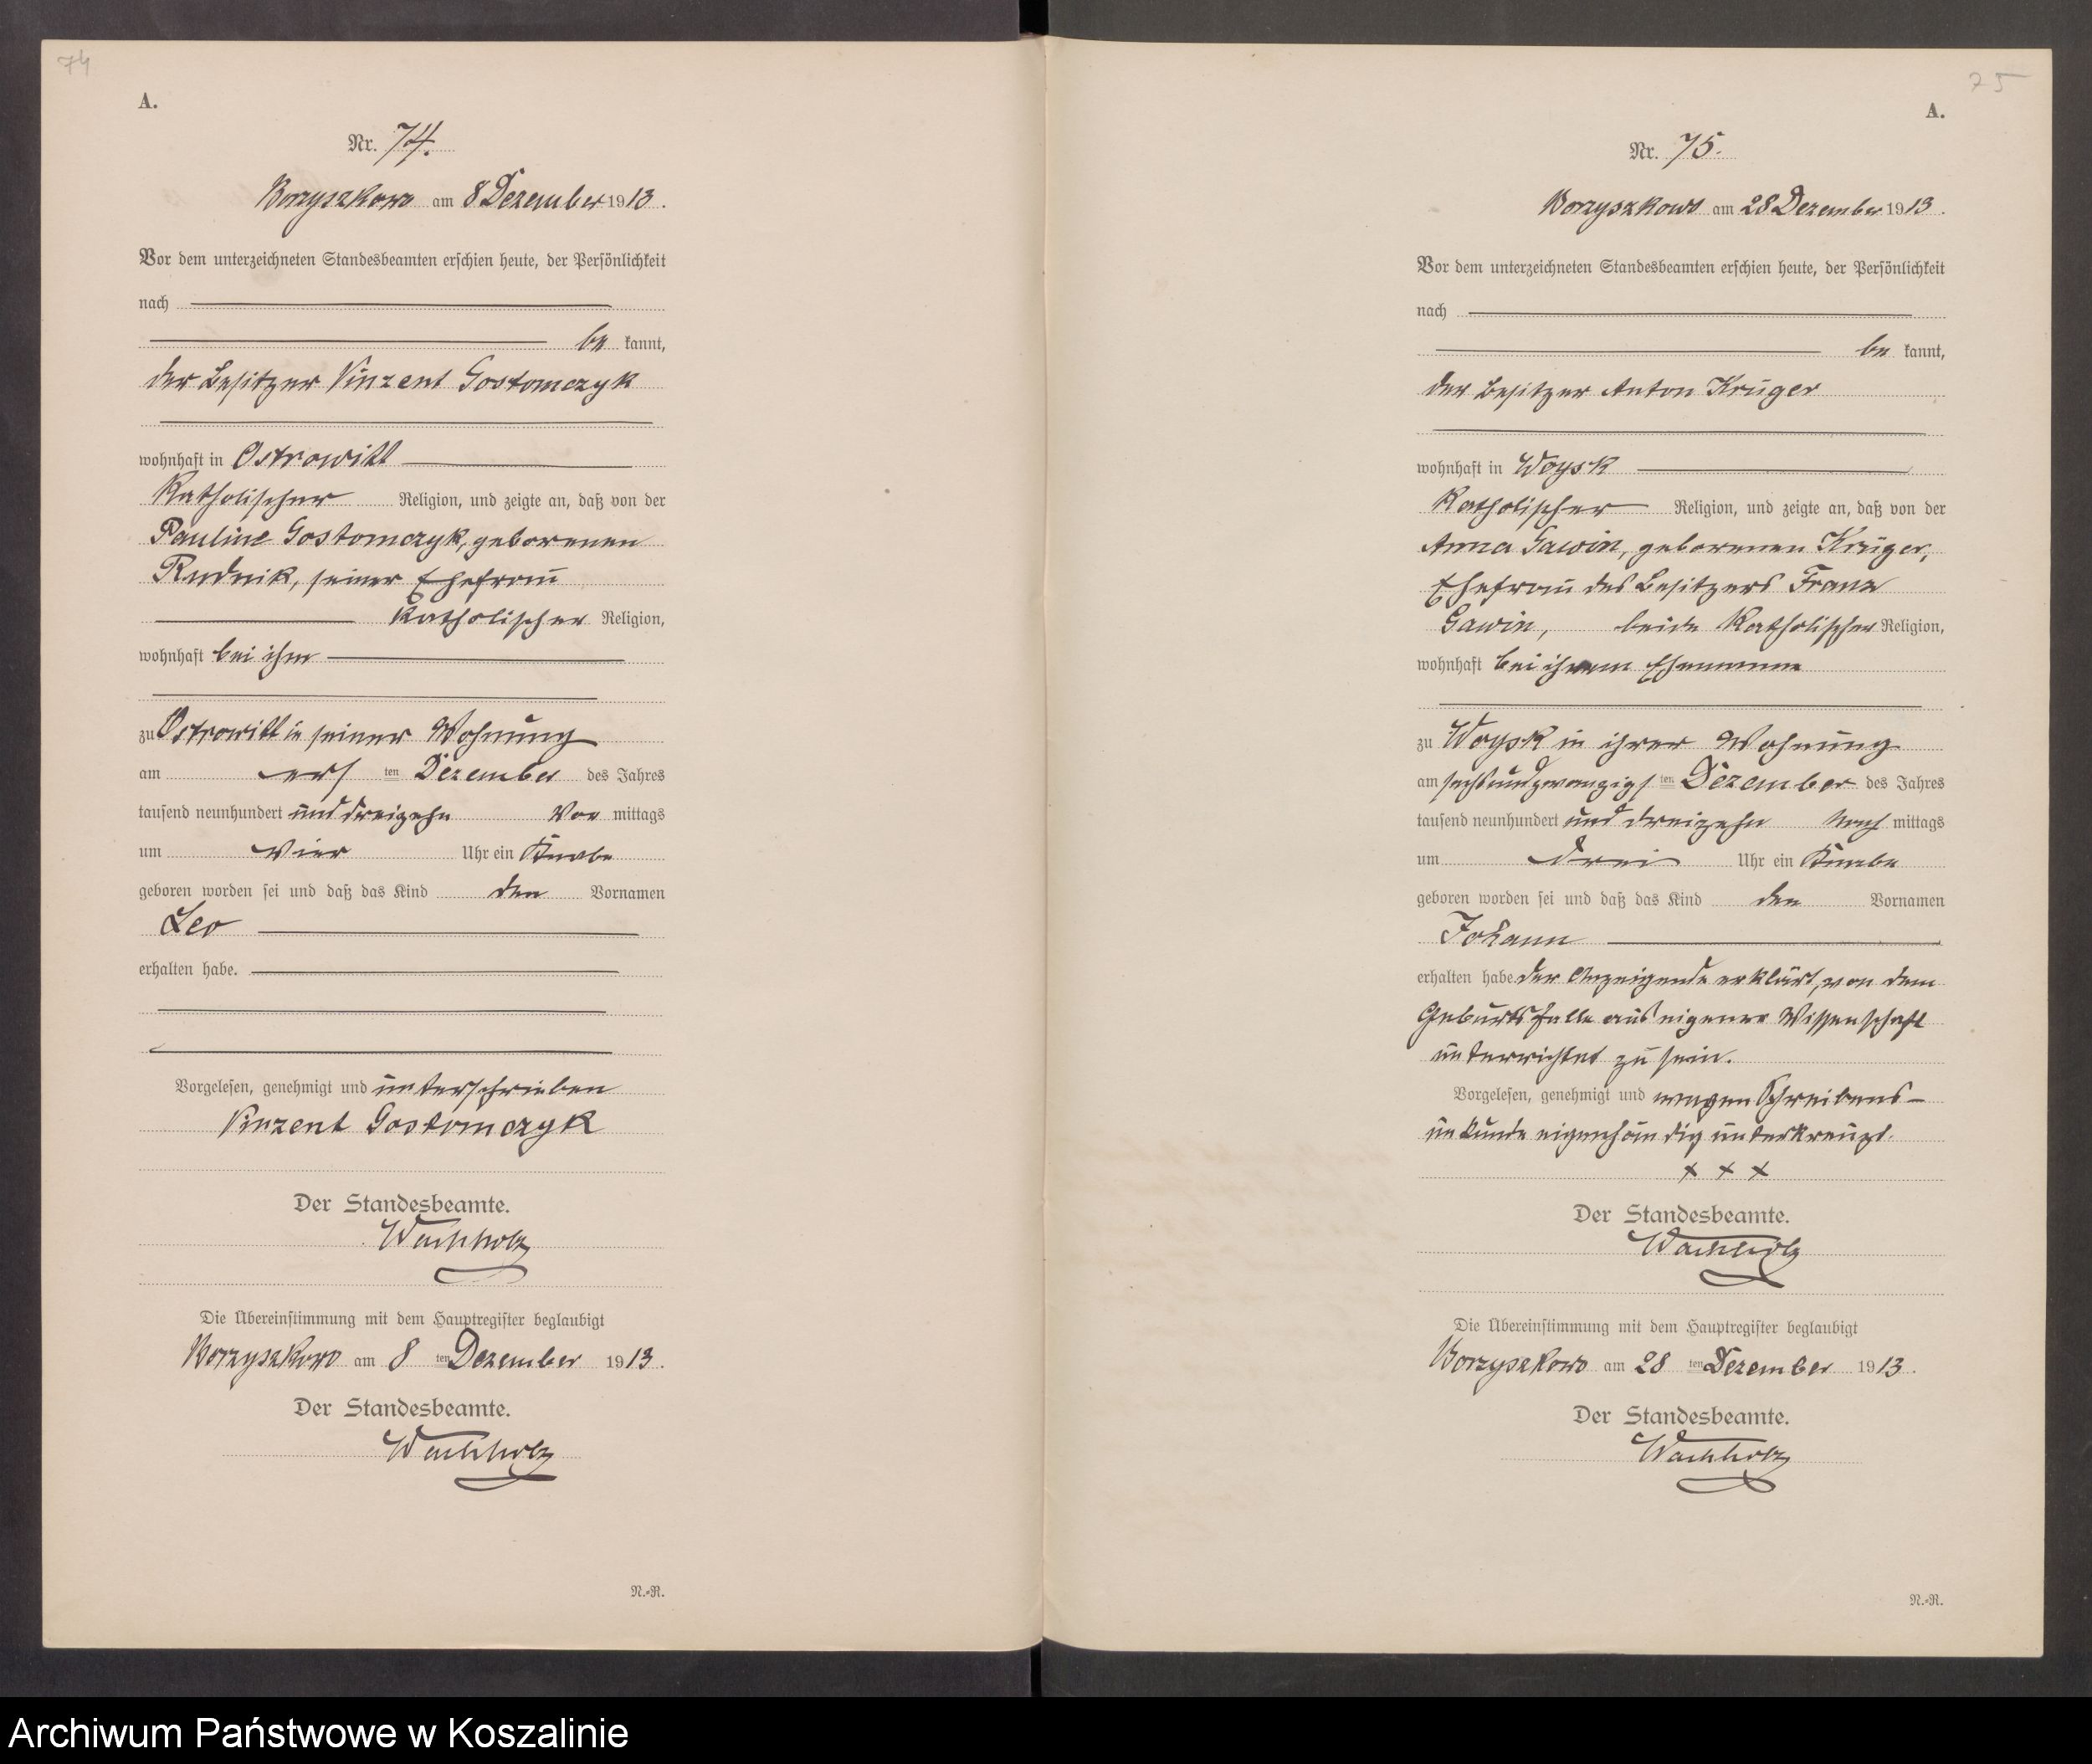 74
A.
Nr. 74.
Borzyszkowo am 8 Dezember 1913.
Vor dem unterzeichneten Standesbeamten erschien heute, der Persönlichkeit
nach
be kannt,
der Besitzer Vinzent Gostomczyk
wohnhaft in Ostrowitt
katholischer Religion, und zeigte an, daß von der
Pauline Gostomczyk, geborenen
Rudnik, seiner Ehefrau
katholischer Religion,
wohnhaft bei ihm
zu Ostrowitt in seiner Wohnung
am ers ten Dezember des Jahres
tausend neunhundert und dreizehn Vor mittags
um vier Uhr ein Knabe
geboren worden sei und daß das Kind den Vornamen
Leo
erhalten habe.
Vorgelesen, genehmigt und unterschrieben
Vinzent Gostomczyk
Der Standesbeamte.
Wachholz
Die Übereinstimmung mit dem Hauptregister beglaubigt
Borzyszkowo am 8 ten Dezember 1913.
Der Standesbeamte.
Wachholz
N.-R.
75
A.
Nr. 75.
Borzyszkowo am 28 Dezember 1913.
Vor dem unterzeichneten Standesbeamten erschien heute, der Persönlichkeit
nach
be kannt,
der Besitzer Anton Krüger
wohnhaft in Woysk
katholischer Religion, und zeigte an, daß von der
Anna Gawin, geborenen Krüger,
Ehefrau des Besitzers Franz
Gawin, beide katholischer Religion,
wohnhaft bei ihrem Ehemanne
zu Woysk in ihrer Wohnung
am sechsundzwanzigs ten Dezember des Jahres
tausend neunhundert und dreizehn Nach mittags
um drei Uhr ein Knabe
geboren worden sei und daß das Kind den Vornamen
Johann
erhalten habe. Der Anzeigende erklärt, von dem
Geburtsfalle aus eigener Wissenschaft
unterrichtet zu sein.
Vorgelesen, genehmigt und wegen Schreibens-
unkunde eigenhändig unterkreuzt.
x x x
Der Standesbeamte.
Wachholz
Die Übereinstimmung mit dem Hauptregister beglaubigt
Borzyszkowo am 28 ten Dezember 1913.
Der Standesbeamte.
Wachholz
N.-R.
Archiwum Państwowe w Koszalinie